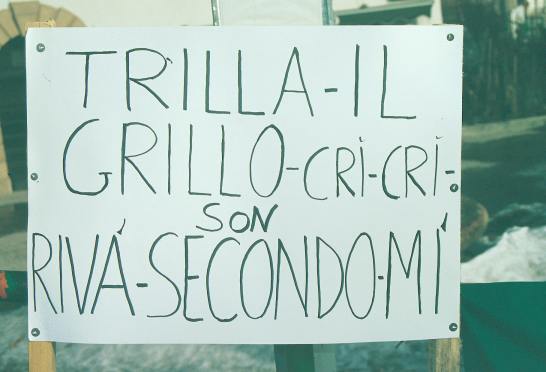 TRILLA-IL
GRILLO-CRì-CRì-
SON
RIVÁ-SECONDO-MÍ